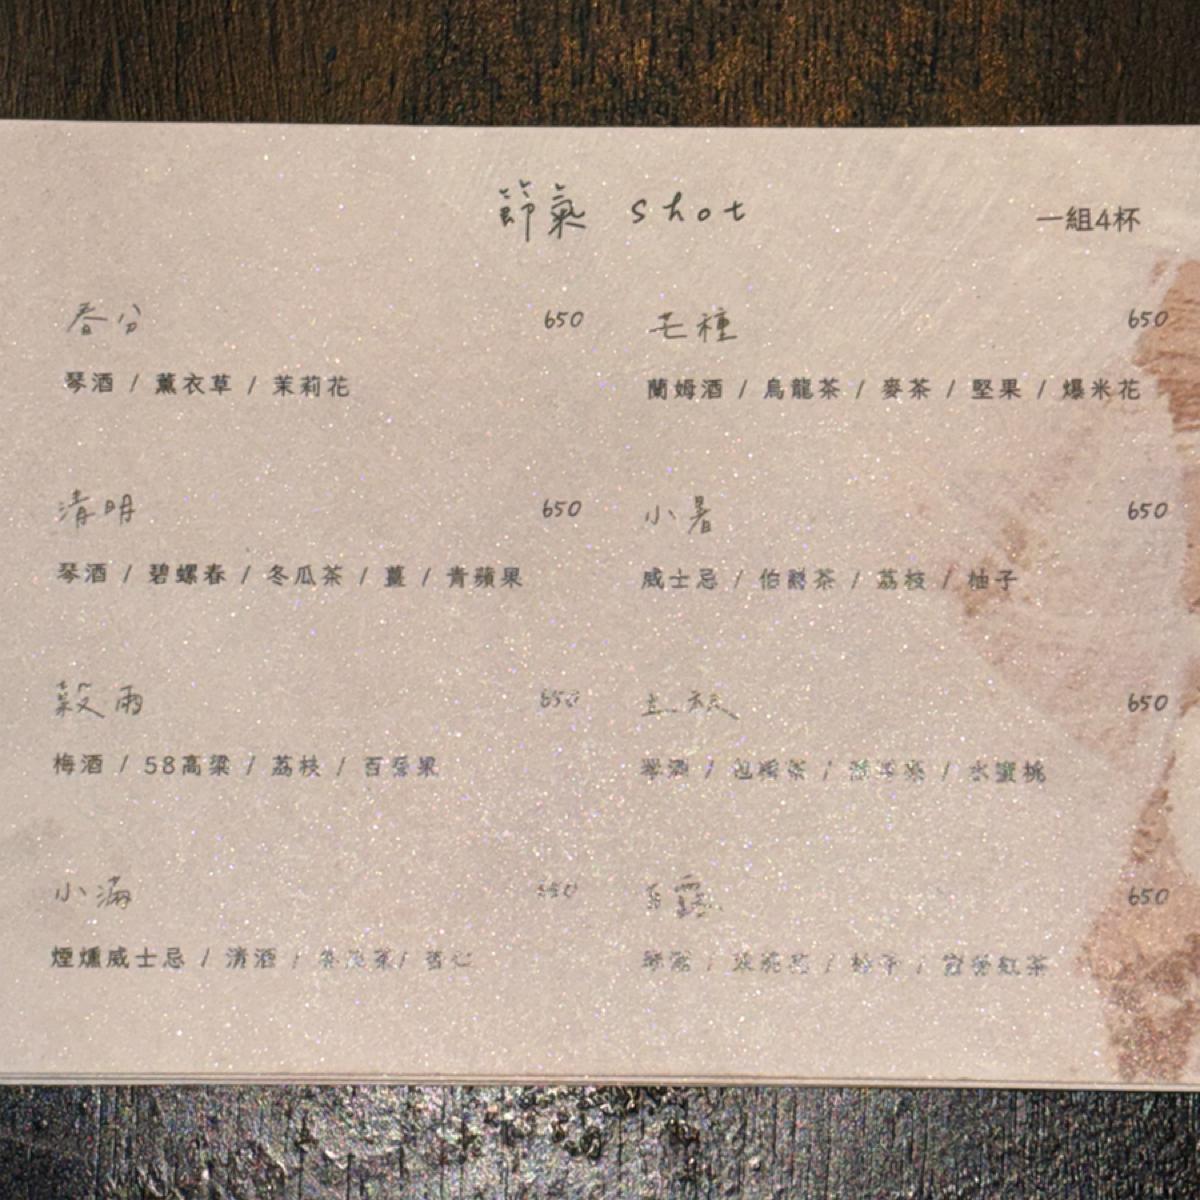 節氣 shot
一組4杯
春分 650
琴酒 / 薰衣草 / 茉莉花
清明 650
琴酒 / 碧螺春 / 冬瓜茶 / 薑 / 青蘋果
穀雨 650
梅酒 / 58高粱 / 荔枝 / 百香果
小滿 650
煙燻威士忌 / 清酒 /
芒種 650
蘭姆酒 / 烏龍茶 / 麥茶 / 堅果 / 爆米花
小暑 650
威士忌 / 伯爵茶 / 荔枝 / 柚子
立秋 650
琴酒 / / / 水蜜桃
白露 650
琴酒 / / 柚子 / 紅茶